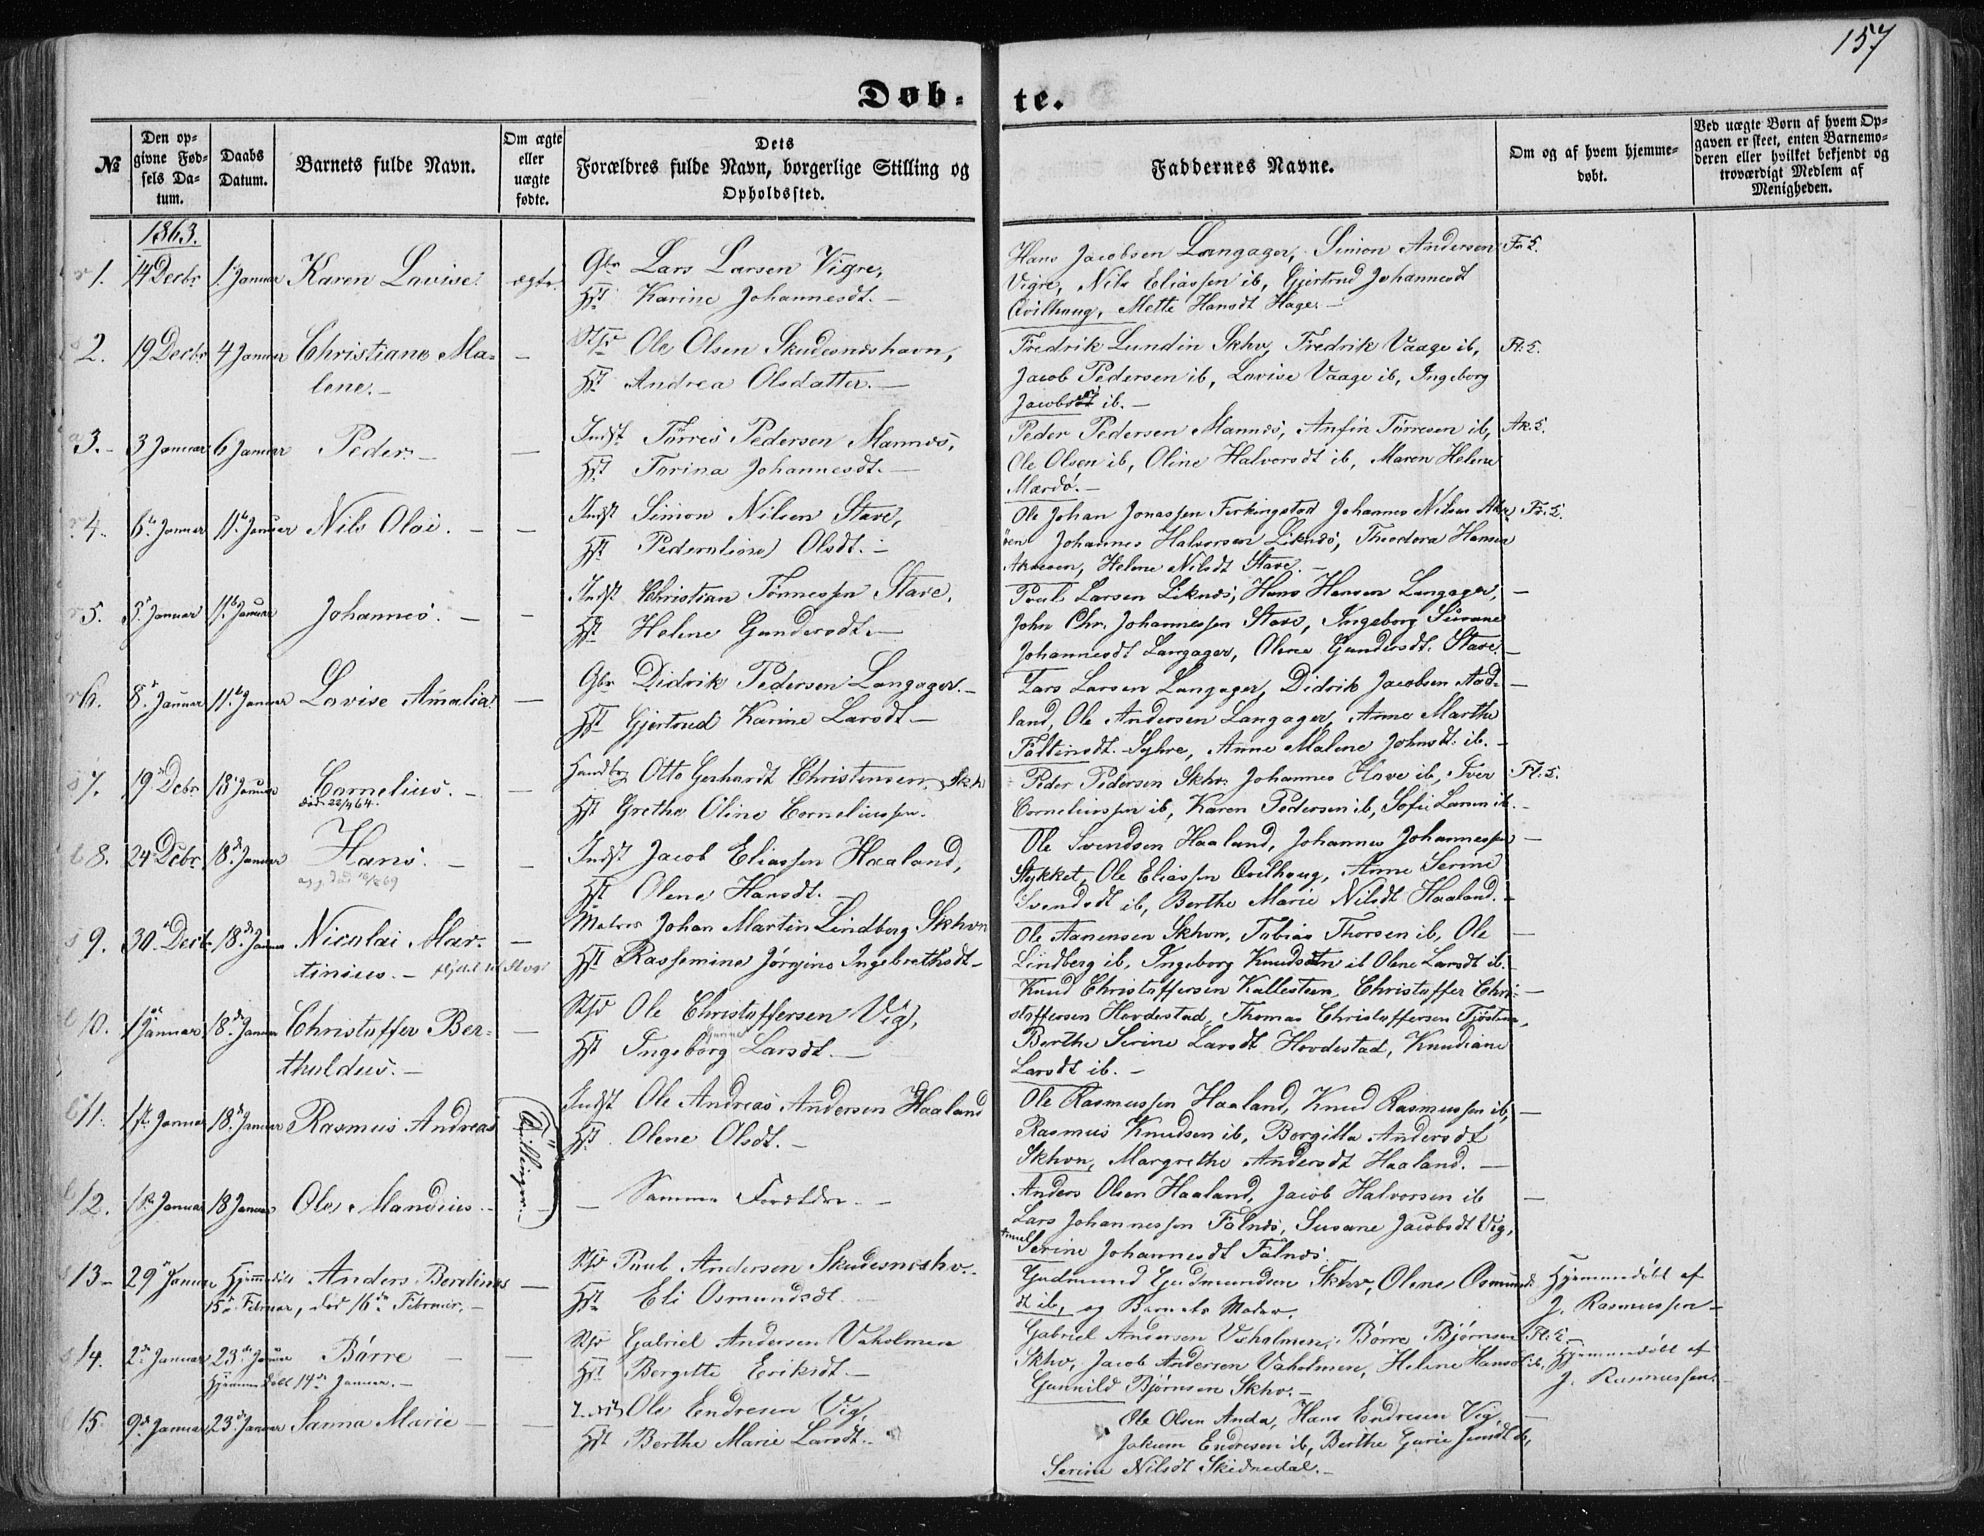 157
Døb-te.
№
Den opgivne Fødsels Datum.
Daabs Datum.
Barnets fulde Navn.
Om ægte eller uægte fødte.
Dets Forældres fulde Navn, borgerlige Stilling og Opholdssted.
Faddernes Navne.
Om og af hvem hjemmedøbt.
Ved uægte Børn af hvem Opgaven er skeet, enten Barnemoderen eller hvilket bekjendt og troværdigt Medlem af Menigheden.
1863.
1. 14 Decbr 1 Januar Karen Lovise ægte.
Gbr Lars Larsen Vigre,
Hst Karine Johannesdt. –
Hans Jacobsen Langager, Simon Andersen
Vigre, Nils Eliassen ib, Gjertrud Johannesdt
Qvilhaug, Mette Hansdt Hage. –
2. 19 Decbr 4 Januar Christiane Ma-
lene. –
Ole Olsen Skudesneshavn,
Hst Andrea Olsdatter. –
Fredrik Lundin Skhv, Fredrik Vaage ib,
Jacob Pedersen ib, Lovise Vaage ib, Ingeborg
Jacobsdt ib. –
3. – 3 Januar 6 Januar Peder –
Indst Tørres Pedersen Mannes,
Hst Torina Johannesdt. –
Peder Pedersen Mannes, Anfin Tørresen ib,
Ole Olsen ib, Oline Halvorsdt ib, Maren Helene
4. 6te Januar 11te Januar Nils Olai. – –
Indst Simon Nilsen Stave,
Hst Olsdt. –
Ole Johan Jonassen Ferkingstad Johannes Nilsen
Johannes Halvorsen Liknes, Theodora Hansen
Helene Nilsdt Stave. –
5. 5 Januar 11te Januar Johannes. – –
Indst Christian Tønnessen Stave,
Hst Helene Gundersdt. –
Poul Larsen Liknes, Hans Hansen Langager, –
John Chr. Johannessen Stave, Ingeborg Susane
Johannesdt Langager, Olene Gundersdt. Stave –
6. 8 Januar 11te Januar Lovise Amalia –
Gbr Didrik Pedersen Langager. –
Hst Gjertrud Karine Larsdt –
Lars Larsen Langager, Didrik Jacobsen Aad- –
land, Ole Andersen Langager, Anne Marthe
Faltinsdt. Syhre, Anne Malene Johnsdt. ib. –
7. 19 Decbr 18 Januar Cornelius. – –
død 22/4 64.
Otto Gerhardt Christensen, Skh
Hst Grethe Oline Corneliussen.
Peder Pedersen Skhv. Johannes Have ib, Iver
Corneliussen ib, Karen Pedersen ib, Sofie Larsen ib. –
8. 24 Decbr 18de Januar Hans. – –
Indst Jacob Eliassen Haaland,
Hst Olene Hansdt. –
Ole Svendsen Haaland, Johannes Johannessen –
Stykket, Ole Eliassen Qvilhaug, Anne Serine
Svendsdt ib, Berthe Marie Nilsdt Haaland. –
9. 30 Decbr 18de Januar Nicolai Mar- –
tinius. –
Matros Johan Martin Lindberg Skhvn
Hst Rassemine Jørgine Ingebrethsdt –
Ole Aanensen Skhvn, Tobias Thorsen ib, Ole –
Lindberg ib, Ingeborg Knudsdtn ib Olene Larsdt ib.
10. 1ste Januar 18de Januar Christoffer Ber- –
tholdus. –
Ole Christoffersen Vig,
Hst Ingeborg Larsdt. –
Knud Christoffersen Kallesteen, Christoffer Chri- –
stoffersen Hovdestad, Thomas Christoffersen
Berthe Serine Larsdt Hovdestad, Knudiane
Larsdt ib. –
11. Januar 18de Januar Rasmus Andreas
(Tvillinger.)
Indst Ole Andreas Andersen Haaland
Hst. Olene Olsdt. –
Ole Rasmussen Haaland, Knud Rasmussen ib, –
Rasmus Knudsen ib, Borgilla Andersdt
Skhvn, Margrethe Andersdt Haaland. –
12. Januar 18 Januar Ole Mandius. –
– Samme Forældre. –
Anders Olsen Haaland, Jacob Halvorsen ib –
Lars Johannessen Falnes, Susane Jacobsdt Vig,
Serine Johannesdt Falnes.
13 – 29 Januar Hjemmedøbt Anders Berelines –
15de Februar, død 16de Februar. –
Poul Andersen Skudesneshv. –
Hst Eli Osmundsdt –
Gudmund Gudmundsen Skhv, Olene Osmunds-
dt ib, og Barnets Moder.
Hjemmedøbt af
J. Rasmussen –
14. 2de Januar 23de Januar Børre – –
Hjemmedøbt 14de Januar. –
Gabriel Andersen Vaholmen
Hst Bergitte Eriksdt. –
Gabriel Andersen Vaholmen, Børre Bjørnsen
Skhv, Jacob Andersen Vaholmen, Helene Hansdt ib,
Gunnild Bjørnsen Skhv. –
Hjemmedøbt af
J. Rasmussen.
15. 9de Januar 23de Januar Sanna Marie – –
Ole Endresen Vig,
Hst Berthe Marie Larsdt. –
Ole Olsen Anda, Hans Endresen Vig, –
Jokum Endresen ib, Berthe Gurie
Serine Nilsdt Skidnedal. –